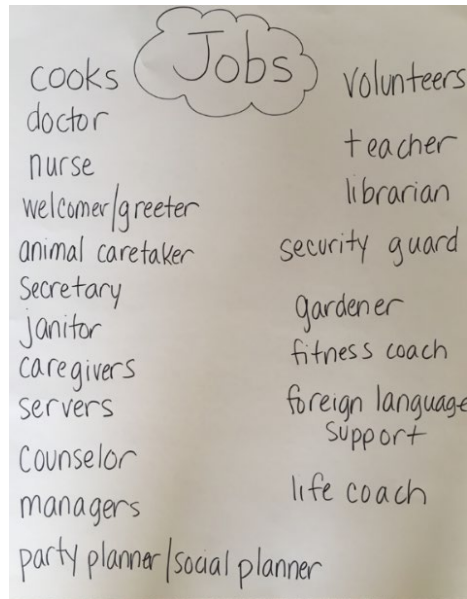 Jobs
cooks
doctor
nurse
welcomer/greeter
animal caretaker
Secretary
janitor
caregivers
servers
Counselor
managers
party planner/social planner
volunteers
teacher
librarian
security guard
gardener
fitness coach
foreign language
support
life coach